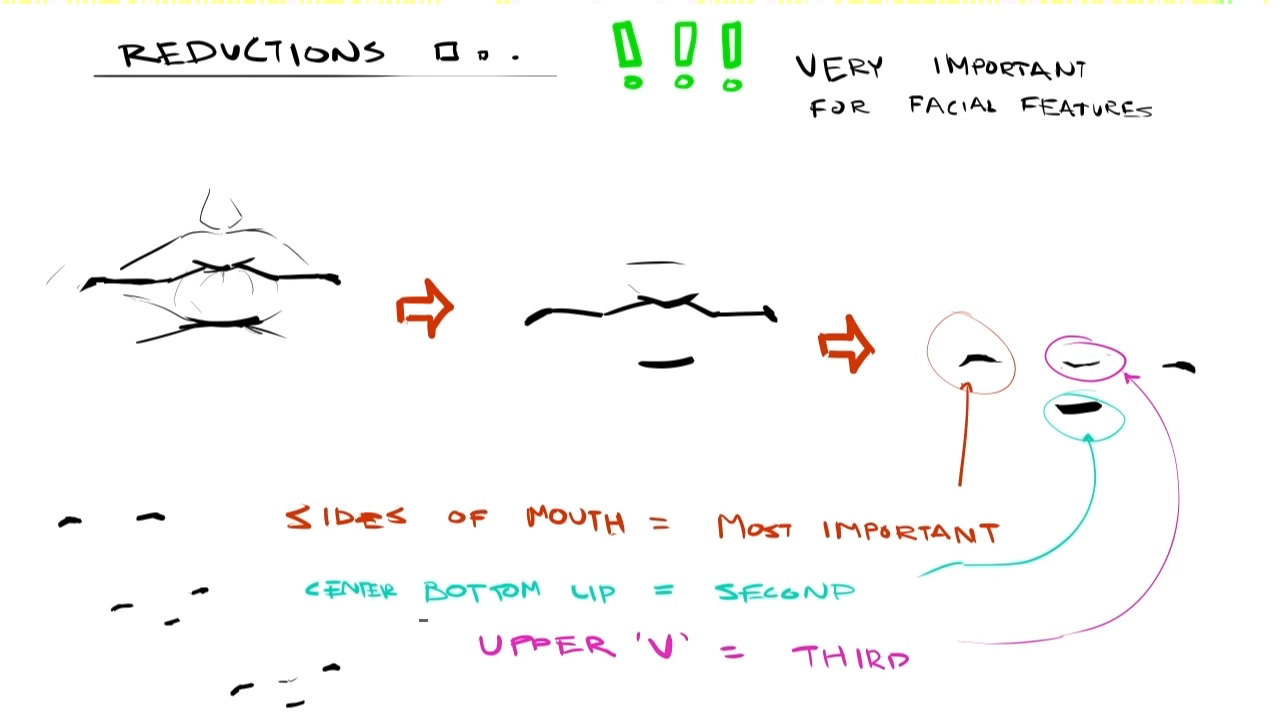 REDUCTIONS ...
!!!
VERY IMPORTANT
FOR FACIAL FEATURES
SIDES OF MOUTH = MOST IMPORTANT
CENTER BOTTOM LIP = SECOND
UPPER 'V' = THIRD